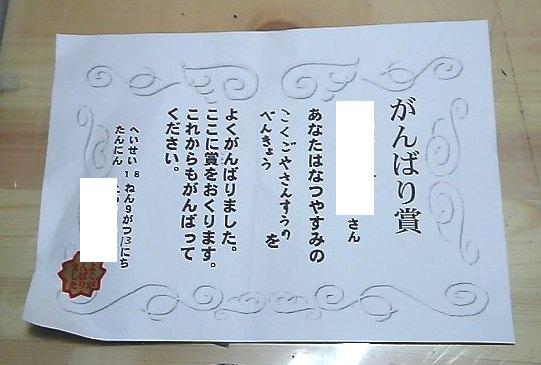 がんばり賞
さん
あなたはなつやすみの
こくごやさんすうの
べんきょう を
よくがんばりました。
ここに賞をおくります。
これからもがんばって
ください。
へいせい18ねん9がつ13にち
たんにん